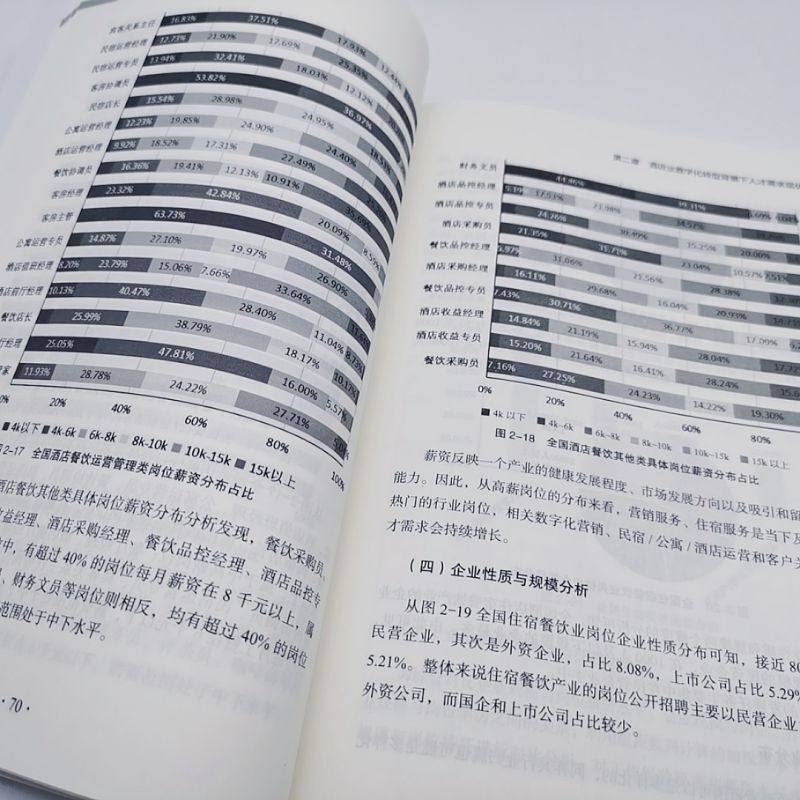 宾客关系主任 16.83% 37.51% 17.93% 12.44%
民宿运营经理 12.73% 21.90% 17.69% 25.35%
民宿运营专员 13.94% 32.41% 18.03% 12.12%
客房协调员 53.82% 36.97%
民宿店长 15.54% 28.98% 24.95% 18.51%
公寓运营经理 12.23% 19.85% 24.90% 24.40%
酒店运营经理 9.92% 18.52% 17.31% 27.49%
餐饮协调员 16.36% 19.41% 12.13% 10.91% 35.69%
客房经理 23.32% 42.84% 20.09% 8.57%
客房主管 63.73% 31.48%
公寓运营专员 14.87% 27.10% 19.97% 26.90%
酒店值班经理 8.20% 23.79% 15.06% 7.66% 33.64% 11.63%
酒店前厅经理 10.13% 40.47% 28.40% 11.04% 8.73%
餐饮店长 25.99% 38.79% 18.17% 10.17%
厅经理 25.05% 47.81% 16.00% 5.57%
家 11.93% 28.78% 24.22% 27.71%
0% 20% 40% 60% 80% 100%
4k以下 4k-6k 6k-8k 8k-10k 10k-15k 15k以上
2-17 全国酒店餐饮运营管理类岗位薪资分布占比
酒店餐饮其他类具体岗位薪资分布分析发现，餐饮采购员、
收益经理、酒店采购经理、餐饮品控经理、酒店品控专
中，有超过40%的岗位每月薪资在8千元以上，属
、财务文员等岗位则相反，均有超过40%的岗位
范围处于中下水平。
· 70 ·
第二章 酒店业数字化转型背景下人才需求现
财务文员 44.46% 39.31%
酒店品控经理 9.19% 17.93% 21.98%
酒店品控专员 24.26% 34.57%
酒店采购员 21.35% 30.49% 15.25% 20.00%
餐饮品控经理 6.97% 35.71% 23.04% 10.57% 7.51%
酒店采购经理 31.06% 21.56% 28.38%
餐饮品控专员 16.11% 29.68% 16.04% 20.93% 14.71%
酒店收益经理 7.43% 30.71% 36.77% 17.09%
酒店收益专员 14.84% 21.19% 15.94% 28.04% 17.72%
餐饮采购员 15.20% 21.64% 16.41% 28.24% 15.6
7.16% 27.25% 24.23% 14.22% 19.30%
0% 20% 40% 60% 80%
4k以下 4k-6k 6k-8k 8k-10k 10k-15k 15k以上
图 2-18 全国酒店餐饮其他类具体岗位薪资分布占比
薪资反映一个产业的健康发展程度、市场发展方向以及吸引和留
能力。因此，从高薪岗位的分布来看，营销服务、住宿服务是当下及
热门的行业岗位，相关数字化营销、民宿/公寓/酒店运营和客户关
才需求会持续增长。
（四）企业性质与规模分析
从图 2-19 全国住宿餐饮业岗位企业性质分布可知，接近 80
民营企业，其次是外资企业，占比 8.08%，上市公司占比 5.29%
5.21%。整体来说住宿餐饮产业的岗位公开招聘主要以民营企业
外资公司，而国企和上市公司占比较少。